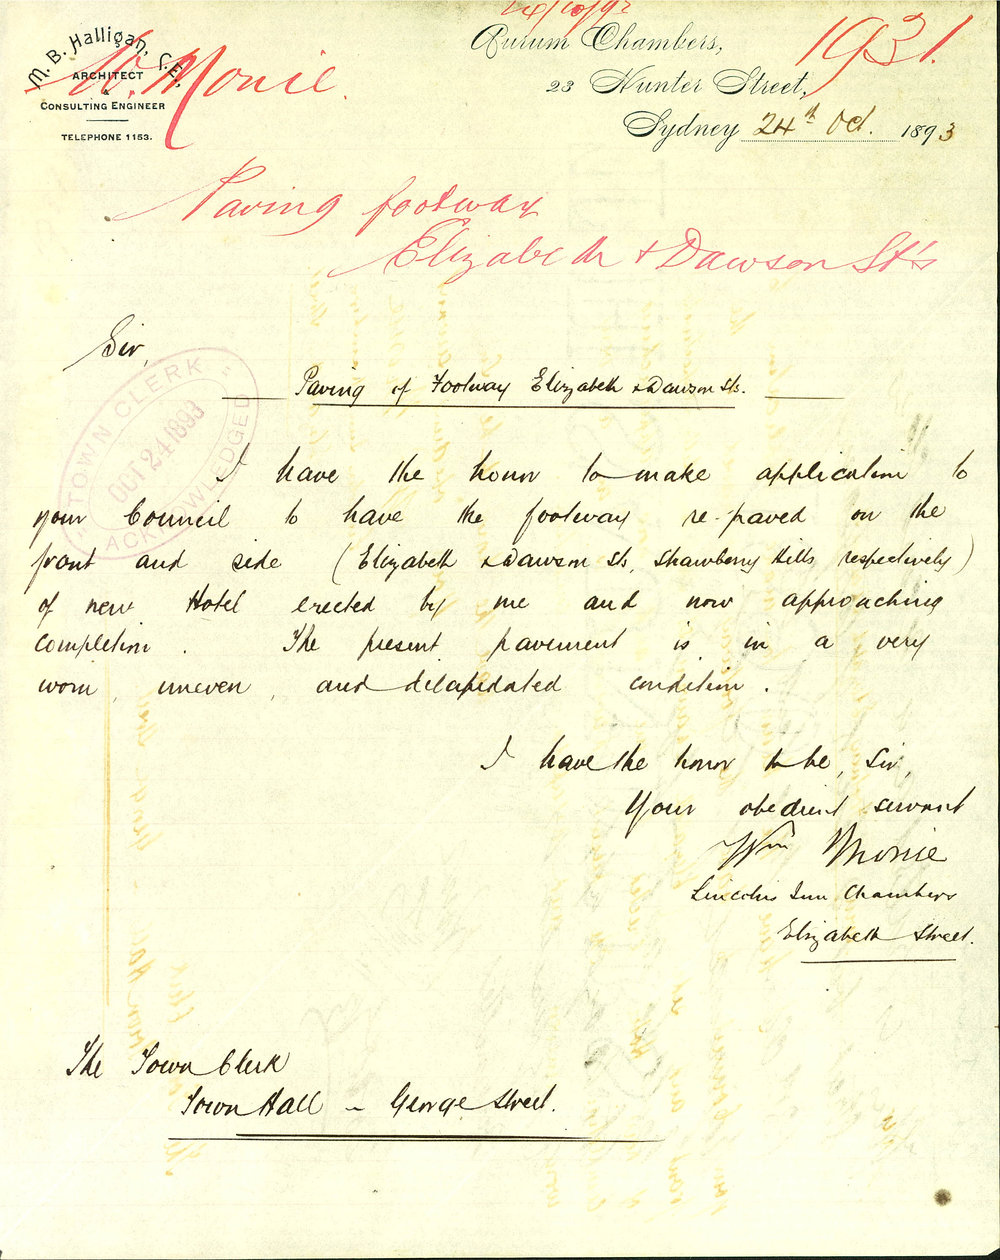 24/10/93
M. B. Halligan, C.E.
ARCHITECT
&
CONSULTING ENGINEER
TELEPHONE 1153.
W. Monie.
Aurum Chambers,
23 Hunter Street,
Sydney 24th Oct. 1893
1931.
Paving footway
Elizabeth & Dawson St's
Sir,
TOWN CLERK
OCT 24 1893
ACKNOWLEDGED
Paving of Footway Elizabeth & Dawson Sts.
I have the honor to make application to
your Council to have the footway re-paved on the
front and side (Elizabeth & Dawson Sts, Strawberry Hills respectively)
of new Hotel erected by me and now approaching
completion. The present pavement is in a very
worn, uneven, and dilapidated condition.
I have the honor to be, Sir,
Your obedient servant
Wm Monie
Lincoln's Inn Chambers
Elizabeth Street.
The Town Clerk
Town Hall - George Street.